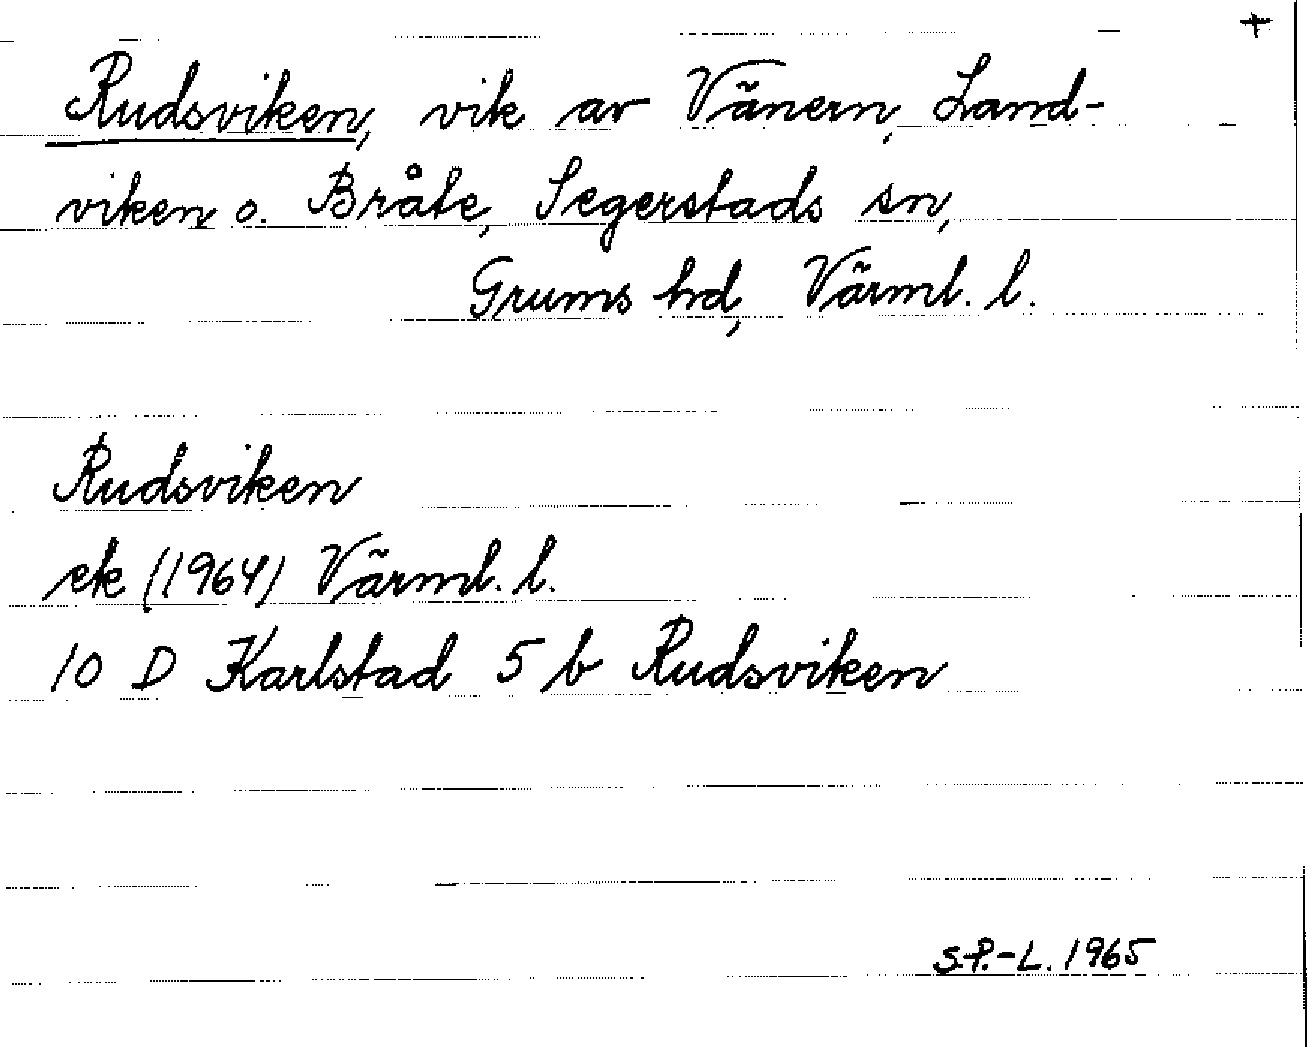 +
Rudsviken, vik av Vänern, Land-
viken o. Bråte, Segerstads sn,
Grums hd, Värml. l.
Rudsviken
ek (1964) Värml. l.
10 D Karlstad 5 b Rudsviken
S.P.-L. 1965